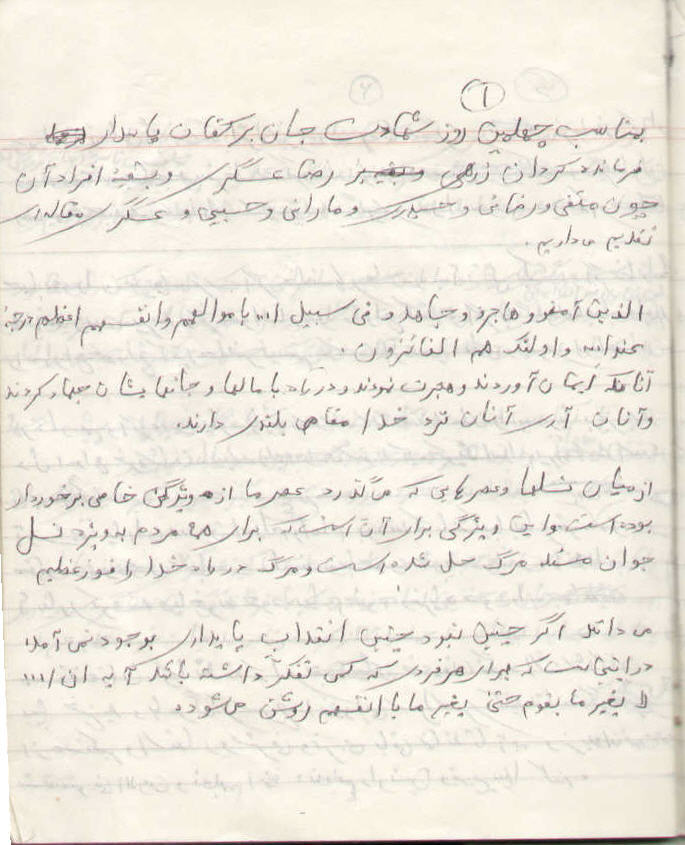 ۱
بمناسبت چهلمین روز شهادت جان برکفان پاسدار
فرمانده گردان زرهی رضا عسگری و بقیه افراد آن
چون متقی و رضائی و حیدری و مارانی و حبیبی و عسگری مقاله‌ای
تقدیم می‌داریم.
الذین آمنوا و هاجرو و جاهدو فی سبیل ا... باموالهم وانفسهم اعظم درجة
عندا... و اولئک هم الفائزون.
آنانکه ایمان آوردند و هجرت نمودند و در راه با مالها و جانهایشان جهاد کردند
و آنان آری آنان نزد خدا مقامی بلندی دارند.
از میان نسلها و عصرهایی که می‌گذرد عصر ما از ویژگی خاصی برخوردار
بوده است و این ویژگی برای آن است که برای همه مردم بویژه نسل
جوان مسئله مرگ حل شده است و مرگ در راه خدا را فوز عظیم
می داند اگر چنین نبود چنین انقلاب پایداری بوجود نمی آمد.
در اینجاست که برای هر فردی که کمی تفکر داشته باشد آیه ان ا...
لا یغیر ما بقوم حتی یغیر ما باانفسهم روشن می‌شود.